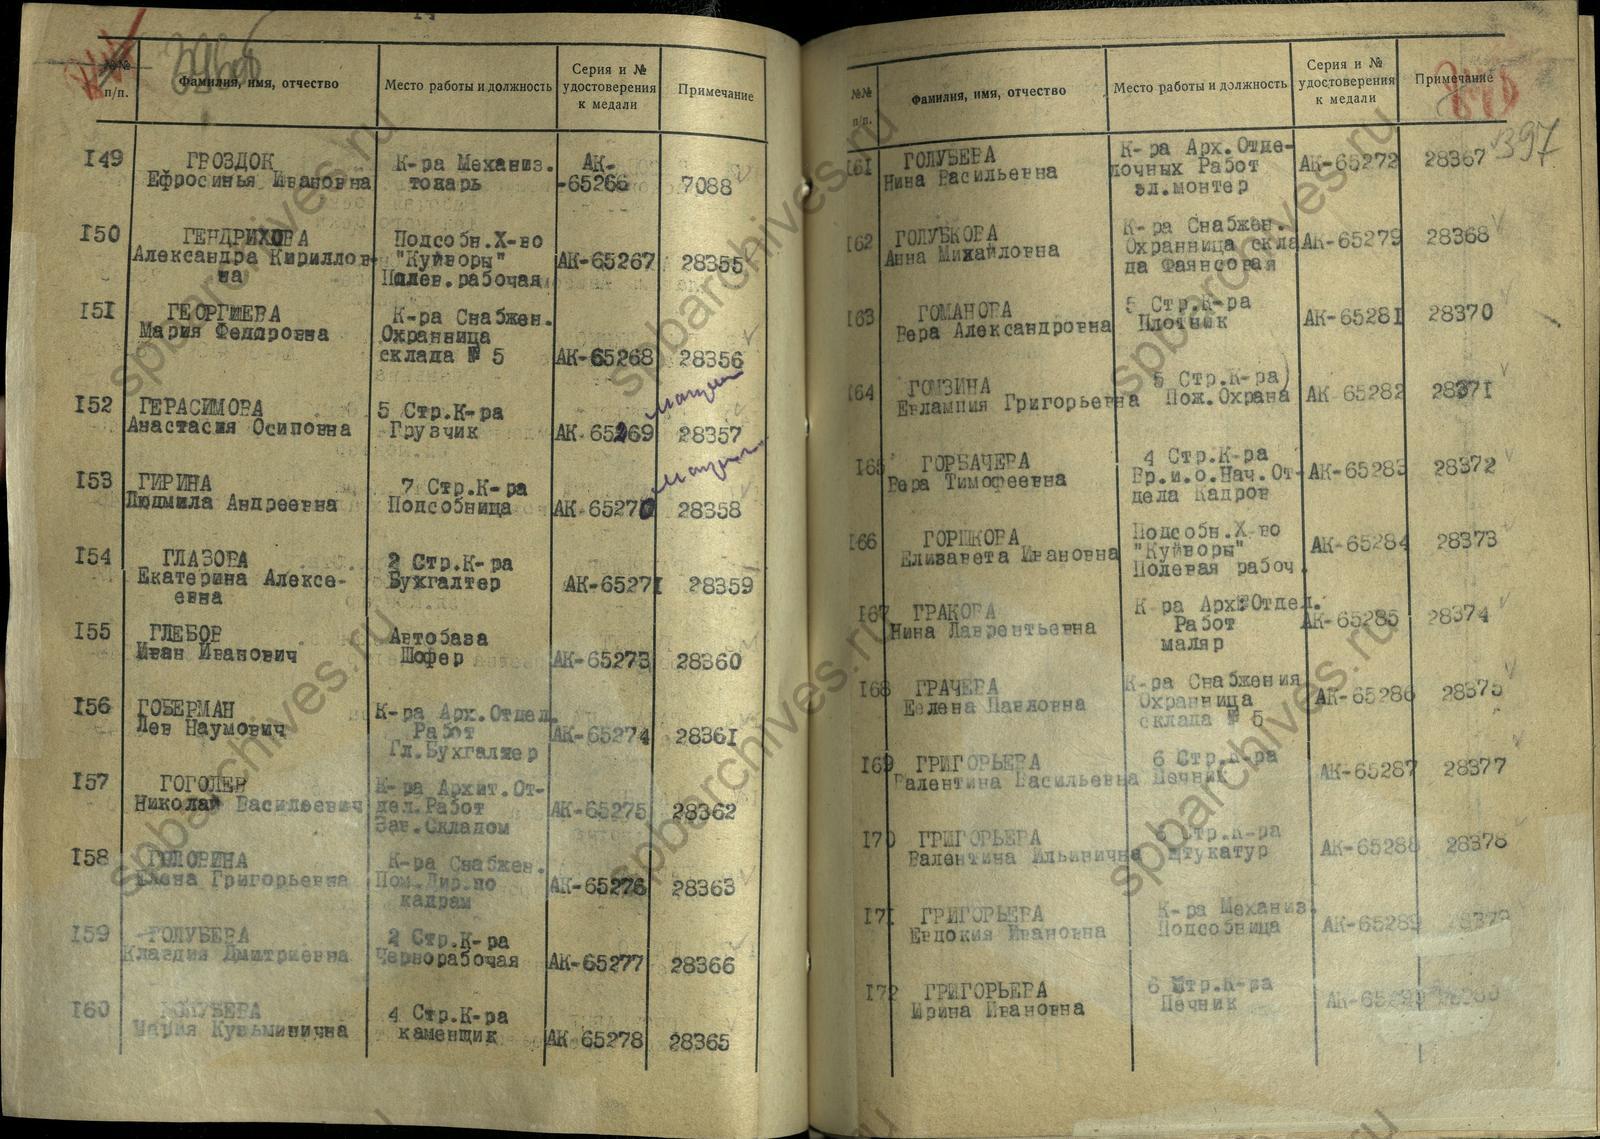 №№ п/п. Фамилия, имя, отчество Место работы и должность Серия и № удостоверения к медали Примечание
149 ГВОЗДОК К-ра Механиз. АК-
Ефросинья Ивановна токарь -65266 7088
150 ГЕНДРИХОВА Подсобн.Х-во
Александра Кириллов- "Куйворы" АК-65267 28355
на Полев.рабочая
151 ГЕОРГИЕВА К-ра Снабжен.
Мария Федоровна Охранница
склада № 5 АК-65268 28356
152 ГЕРАСИМОВА 5 Стр.К-ра
Анастасия Осиповна Грузчик АК-65269 28357
153 ГИРИНА 7 Стр.К-ра
Людмила Андреевна Подсобница АК-65270 28358
154 ГЛАЗОВА 2 Стр.К-ра
Екатерина Алексе- Бухгалтер АК-65271 28359
евна
155 ГЛЕБОВ Автобаза
Иван Иванович Шофер АК-65273 28360
156 ГОБЕРМАН К-ра Арх.Отдел.
Лев Наумович Работ АК-65274 28361
Гл.Бухгалтер
157 ГОГОЛЕВ К-ра Архит.От-
Николай Васильевич дел.Работ АК-65275 28362
Зав.Складом
158 ГОЛОВИНА К-ра Снабжен.
Елена Григорьевна Пом.Дир.по АК-65276 28363
кадрам
159 ГОЛУБЕВА 2 Стр.К-ра
Клавдия Дмитриевна Чернорабочая АК-65277 28366
160 ГОЛУБЕВА 4 Стр.К-ра
Мария Кузьминична каменщик АК-65278 28365
№№ п/п. Фамилия, имя, отчество Место работы и должность Серия и № удостоверения к медали Примечание
397
161 ГОЛУБЕВА К-ра Арх.Отде-
Нина Васильевна лочных Работ АК-65272 28367
эл.монтер
162 ГОЛУБКОВА К-ра Снабжен.
Анна Михайловна Охранница скла АК-65279 28368
да Фаянсовая
163 ГОМАНОВА 5 Стр.К-ра
Вера Александровна Плотник АК-65281 28370
164 ГОМЗИНА 5 Стр.К-ра)
Евлампия Григорьевна Пож.Охрана АК-65282 28371
165 ГОРБАЧЕВА 4 Стр.К-ра
Вера Тимофеевна Вр.и.о.Нач.От- АК-65283 28372
дела Кадров
166 ГОРШКОВА Подсобн.Х-во
Елизавета Ивановна "Куйворы" АК-65284 28373
Полевая рабоч.
167 ГРАКОВА К-ра Арх.Отдел.
Нина Лаврентьевна Работ АК-65285 28374
маляр
168 ГРАЧЕВА К-ра Снабжения
Еелена Павловна Охранница АК-65286 28375
склада № 5
169 ГРИГОРЬЕВА 6 Стр.К-ра
Валентина Васильевна Печник АК-65287 28377
170 ГРИГОРЬЕВА 6 Стр.К-ра
Валентина Ильинична Штукатур АК-65288 28378
171 ГРИГОРЬЕВА К-ра Механиз.
Евдокия Ивановна Подсобница АК-65289 28379
172 ГРИГОРЬЕВА 6 Стр.К-ра
Ирина Ивановна Печник
spbarchives.ru